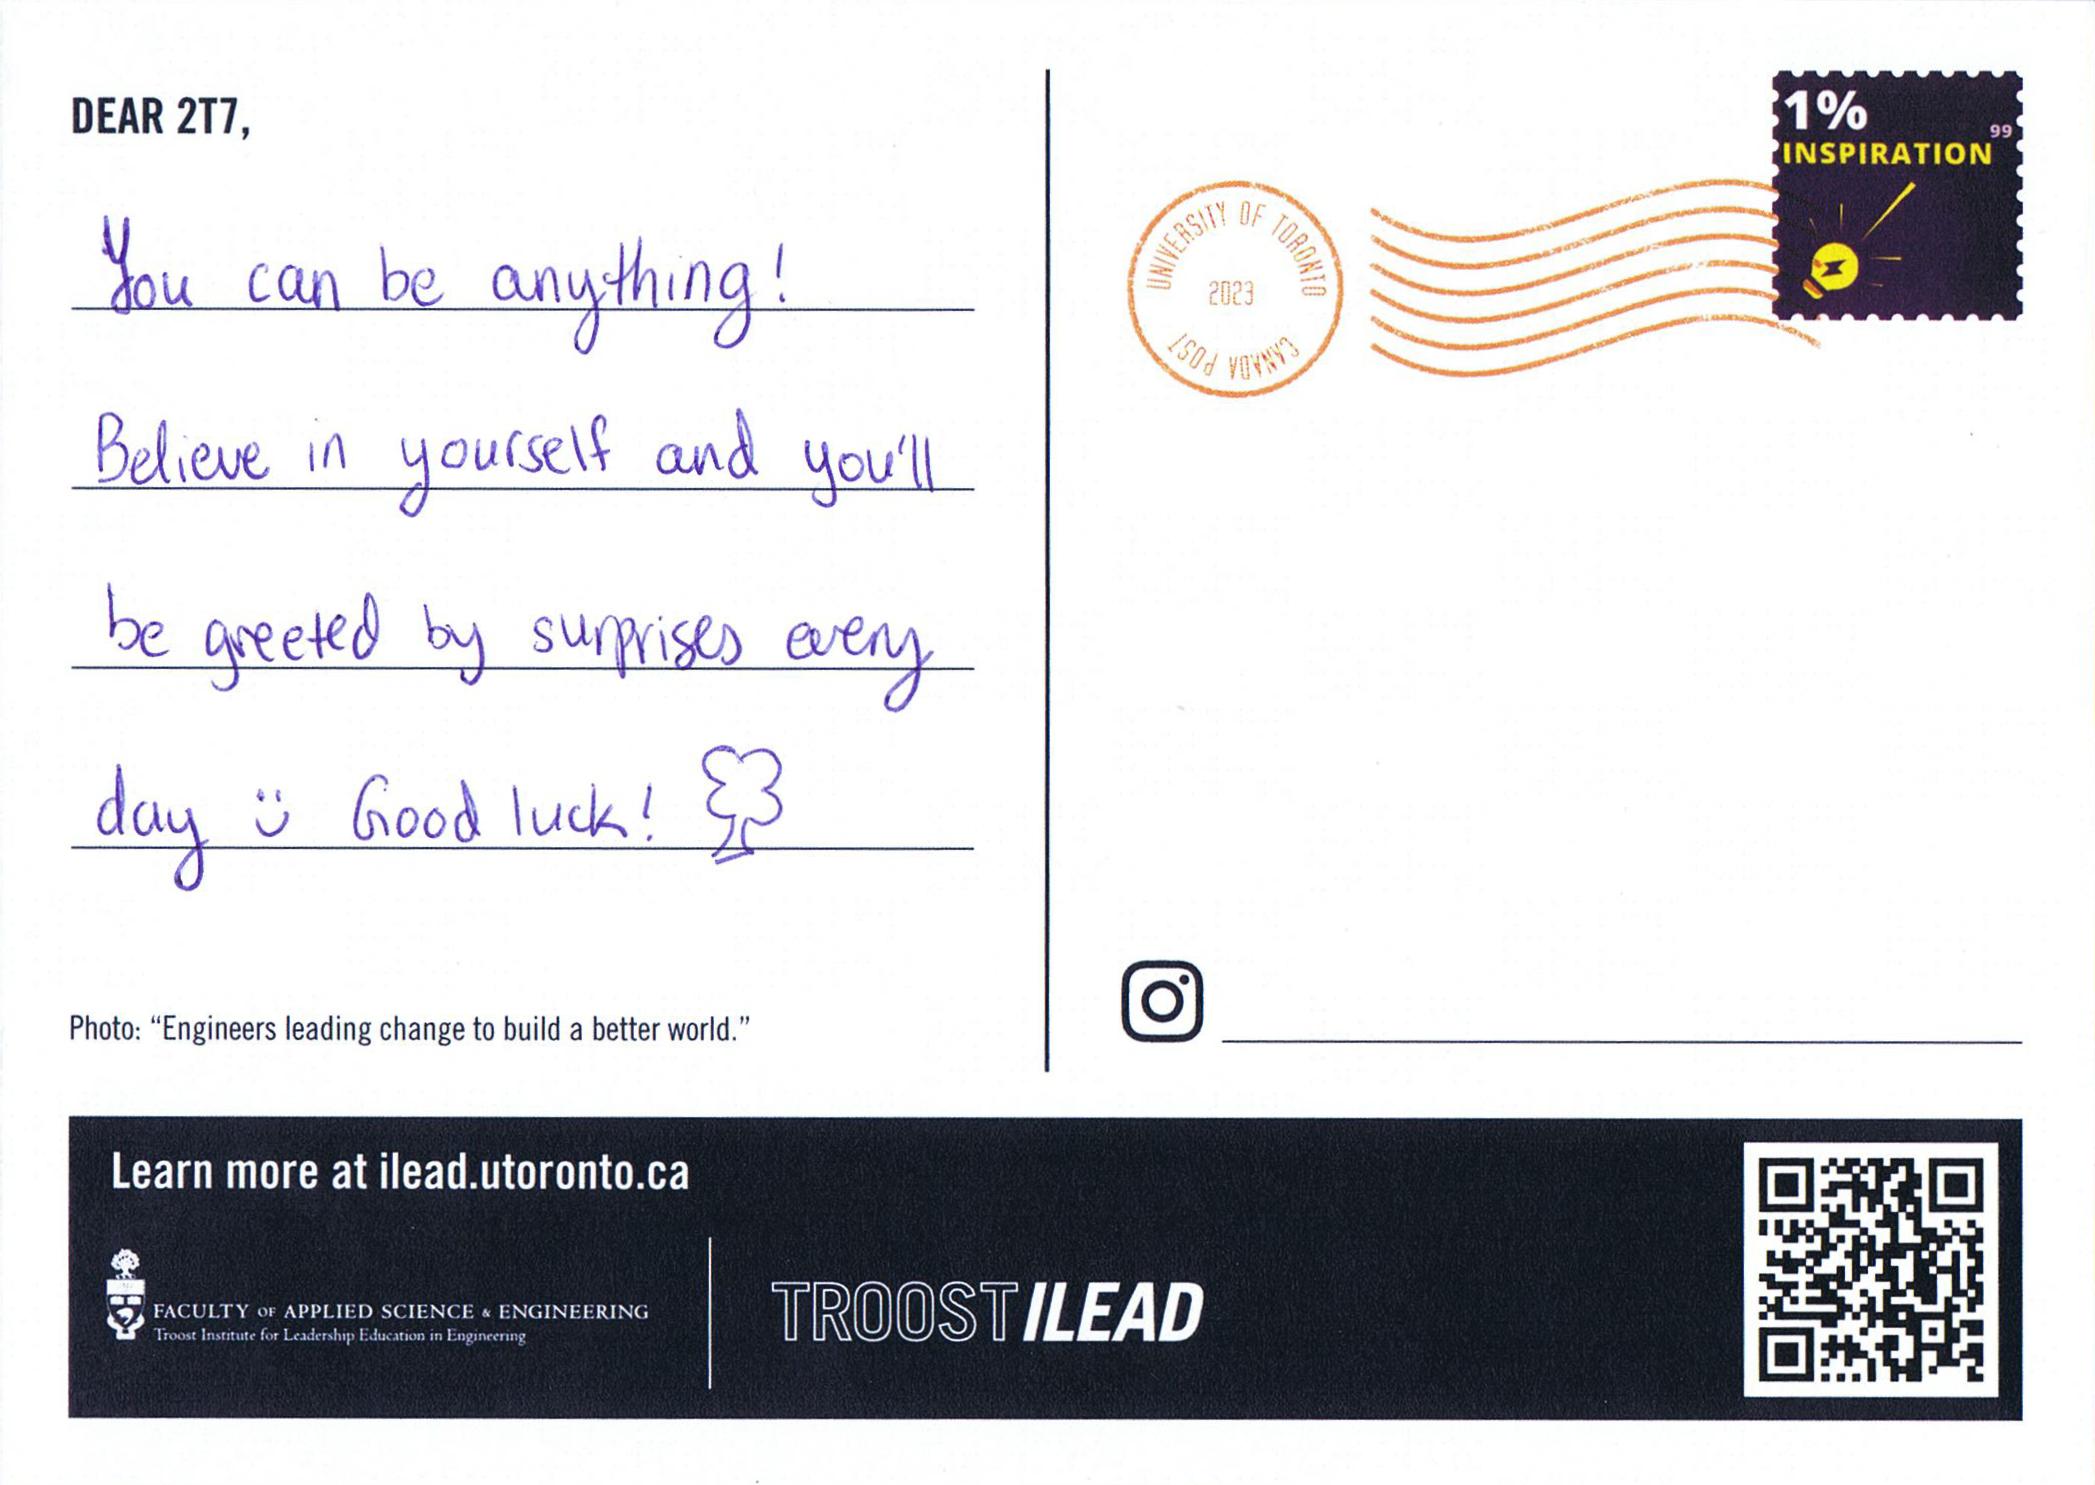 DEAR 2T7,
You can be anything!
Believe in yourself and you'll
be greeted by surprises every
day Good luck!
Photo: “Engineers leading change to build a better world.”
1%
99
INSPIRATION
UNIVERSITY OF TORONTO
2023
CANADA POST
Learn more at ilead.utoronto.ca
FACULTY OF APPLIED SCIENCE & ENGINEERING
Troost Institute for Leadership Education in Engineering
TROOST ILEAD